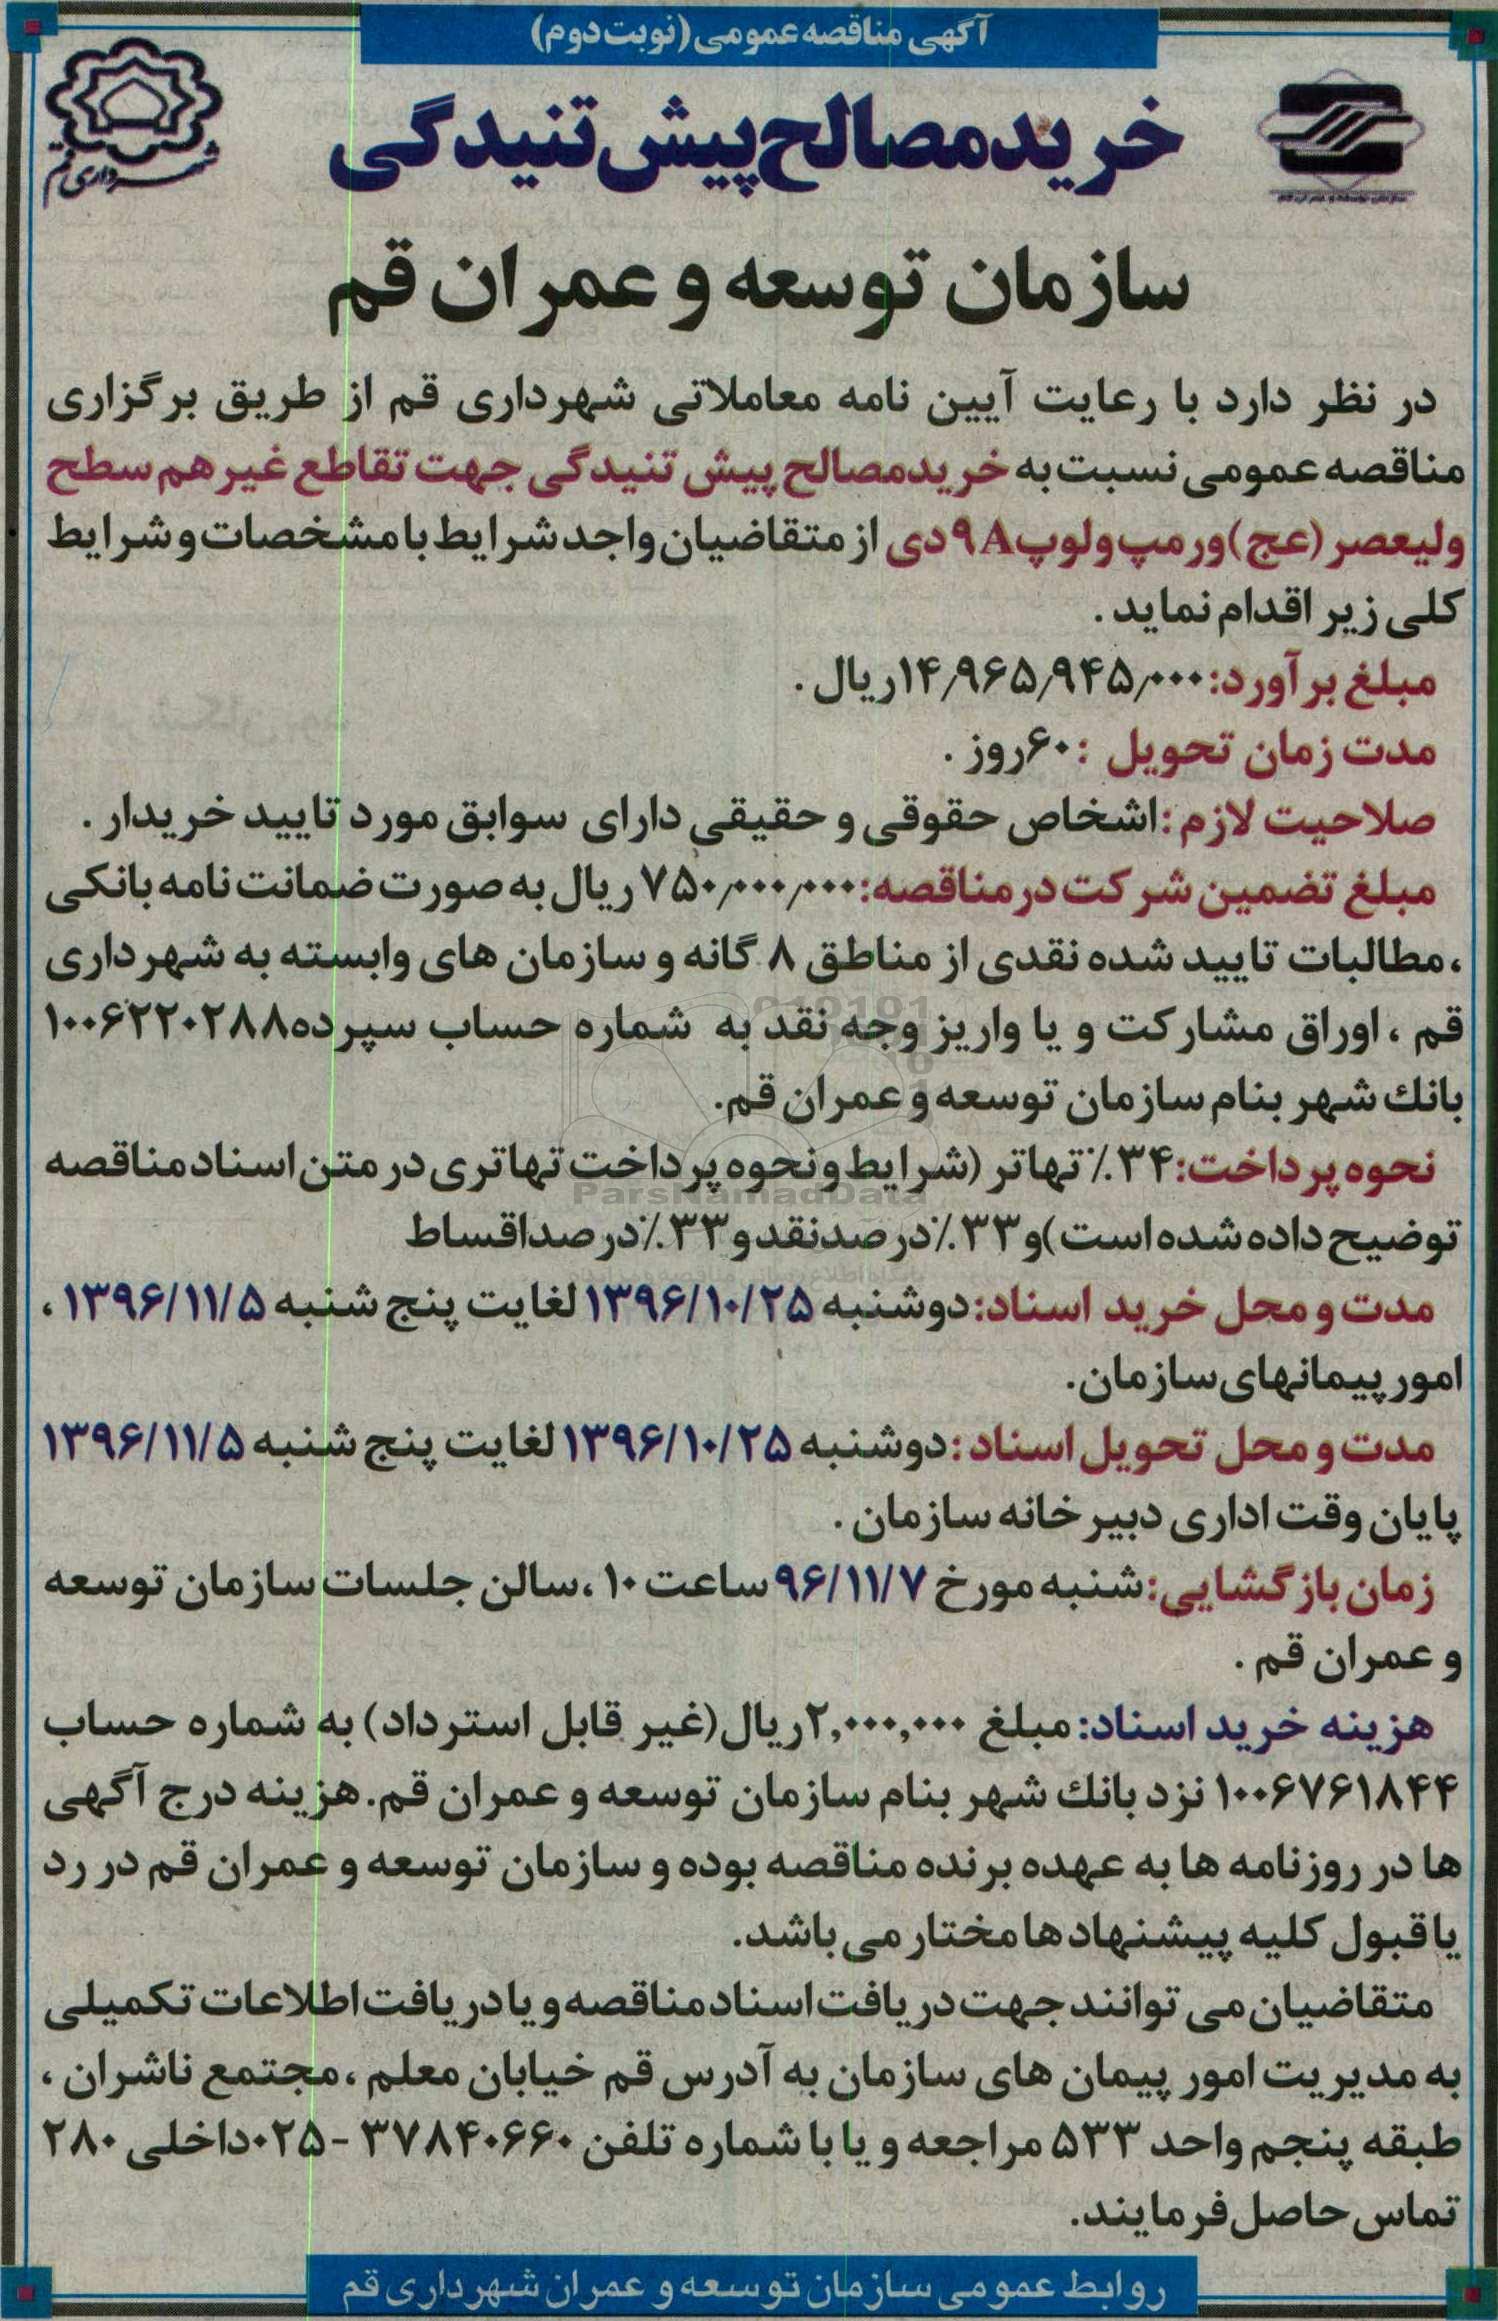 آگهی مناقصه عمومی (نوبت دوم)
شهرداری قم
خرید مصالح پیش تنیدگی
سازمان توسعه و عمران قم
در نظر دارد با رعایت آیین نامه معاملاتی شهرداری قم از طریق برگزاری
مناقصه عمومی نسبت به خرید مصالح پیش تنیدگی جهت تقاطع غیر هم سطح
ولیعصر (عج) و رمپ و لوپ A۹ دی از متقاضیان واجد شرایط با مشخصات و شرایط
کلی زیر اقدام نماید .
مبلغ برآورد: ۱۴٫۹۶۵٫۹۴۵٫۰۰۰ ریال .
مدت زمان تحویل : ۶۰ روز .
صلاحیت لازم : اشخاص حقوقی و حقیقی دارای سوابق مورد تایید خریدار .
مبلغ تضمین شرکت در مناقصه: ۷۵۰٫۰۰۰٫۰۰۰ ریال به صورت ضمانت نامه بانکی
، مطالبات تایید شده نقدی از مناطق ۸ گانه و سازمان های وابسته به شهرداری
قم ، اوراق مشارکت و یا واریز وجه نقد به شماره حساب سپرده ۱۰۰۶۲۲۰۲۸۸
بانك شهر بنام سازمان توسعه و عمران قم.
نحوه پرداخت: ۳۴٪ تهاتر (شرایط و نحوه پرداخت تهاتری در متن اسناد مناقصه
توضیح داده شده است) و ۳۳٪ درصد نقد و ۳۳٪ درصد اقساط
مدت و محل خرید اسناد: دوشنبه ۱۳۹۶/۱۰/۲۵ لغایت پنج شنبه ۱۳۹۶/۱۱/۵ ،
امور پیمانهای سازمان.
مدت و محل تحویل اسناد : دوشنبه ۱۳۹۶/۱۰/۲۵ لغایت پنج شنبه ۱۳۹۶/۱۱/۵
پایان وقت اداری دبیرخانه سازمان .
زمان بازگشایی: شنبه مورخ ۹۶/۱۱/۷ ساعت ۱۰ ، سالن جلسات سازمان توسعه
و عمران قم .
هزینه خرید اسناد: مبلغ ۲,۰۰۰,۰۰۰ ریال (غیر قابل استرداد) به شماره حساب
۱۰۰۶۷۶۱۸۴۴ نزد بانك شهر بنام سازمان توسعه و عمران قم. هزینه درج آگهی
ها در روزنامه ها به عهده برنده مناقصه بوده و سازمان توسعه و عمران قم در رد
یا قبول کلیه پیشنهادها مختار می باشد.
متقاضیان می توانند جهت دریافت اسناد مناقصه و یا دریافت اطلاعات تکمیلی
به مدیریت امور پیمان های سازمان به آدرس قم خیابان معلم ، مجتمع ناشران ،
طبقه پنجم واحد ۵۳۳ مراجعه و یا با شماره تلفن ۳۷۸۴۰۶۶۰ - ۰۲۵ داخلی ۲۸۰
تماس حاصل فرمایند.
روابط عمومی سازمان توسعه و عمران شهرداری قم
ParsNamadData